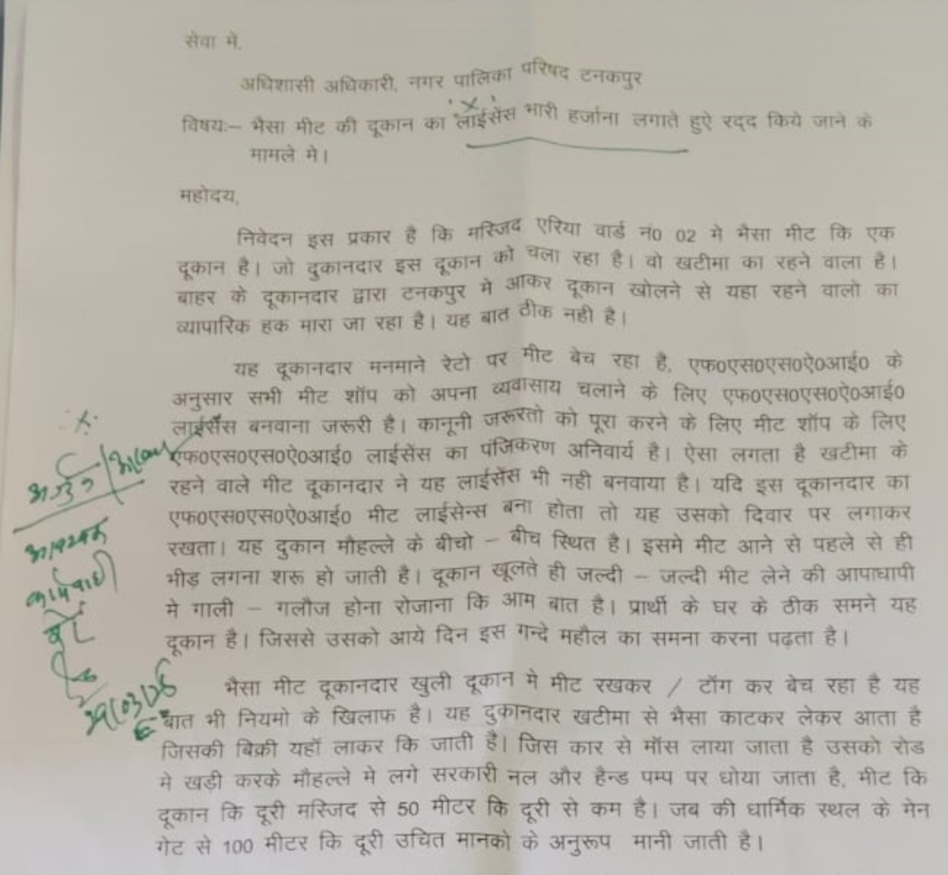 सेवा में,
अधिशासी अधिकारी, नगर पालिका परिषद टनकपुर
विषयः– भैसा मीट की दूकान का लाईसेंस भारी हर्जाना लगाते हुऐ रद्द किये जाने के
मामले मे।
महोदय,
निवेदन इस प्रकार है कि मस्जिद एरिया वार्ड नं0 02 मे भैसा मीट कि एक
दूकान है। जो दुकानदार इस दूकान को चला रहा है। वो खटीमा का रहने वाला है।
बाहर के दूकानदार द्वारा टनकपुर मे आकर दूकान खोलने से यहा रहने वालो का
व्यापारिक हक मारा जा रहा है। यह बात ठीक नही है।
यह दूकानदार मनमाने रेटो पर मीट बेच रहा है, एफ0एस0एस0ऐ0आई0 के
अनुसार सभी मीट शॉप को अपना व्यवासाय चलाने के लिए एफ0एस0एस0ऐ0आई0
लाईसैंस बनवाना जरूरी है। कानूनी जरूरतो को पूरा करने के लिए मीट शॉप के लिए
एफ0एस0एस0ऐ0आई0 लाईसेंस का पंजिकरण अनिवार्य है। ऐसा लगता है खटीमा के
रहने वाले मीट दूकानदार ने यह लाईसेंस भी नही बनवाया है। यदि इस दूकानदार का
एफ0एस0एस0ऐ0आई0 मीट लाईसेन्स बना होता तो यह उसको दिवार पर लगाकर
रखता। यह दुकान मौहल्ले के बीचो – बीच स्थित है। इसमे मीट आने से पहले से ही
भीड़ लगना शरू हो जाती है। दूकान खूलते ही जल्दी – जल्दी मीट लेने की आपाधापी
मे गाली – गलौज होना रोजाना कि आम बात है। प्रार्थी के घर के ठीक समने यह
दूकान है। जिससे उसको आये दिन इस गन्दे महौल का समना करना पढ़ता है।
भैसा मीट दूकानदार खुली दूकान मे मीट रखकर / टॉग कर बेच रहा है यह
बात भी नियमो के खिलाफ है। यह दुकानदार खटीमा से भैसा काटकर लेकर आता है
जिसकी बिक्री यहॉ लाकर कि जाती है। जिस कार से मॉस लाया जाता है उसको रोड
मे खड़ी करके मौहल्ले मे लगे सरकारी नल और हैन्ड पम्प पर धोया जाता है, मीट कि
दूकान कि दूरी मस्जिद से 50 मीटर कि दूरी से कम है। जब की धार्मिक स्थल के मेन
गेट से 100 मीटर कि दूरी उचित मानको के अनुरूप मानी जाती है।
आवश्यक
कार्यवाही